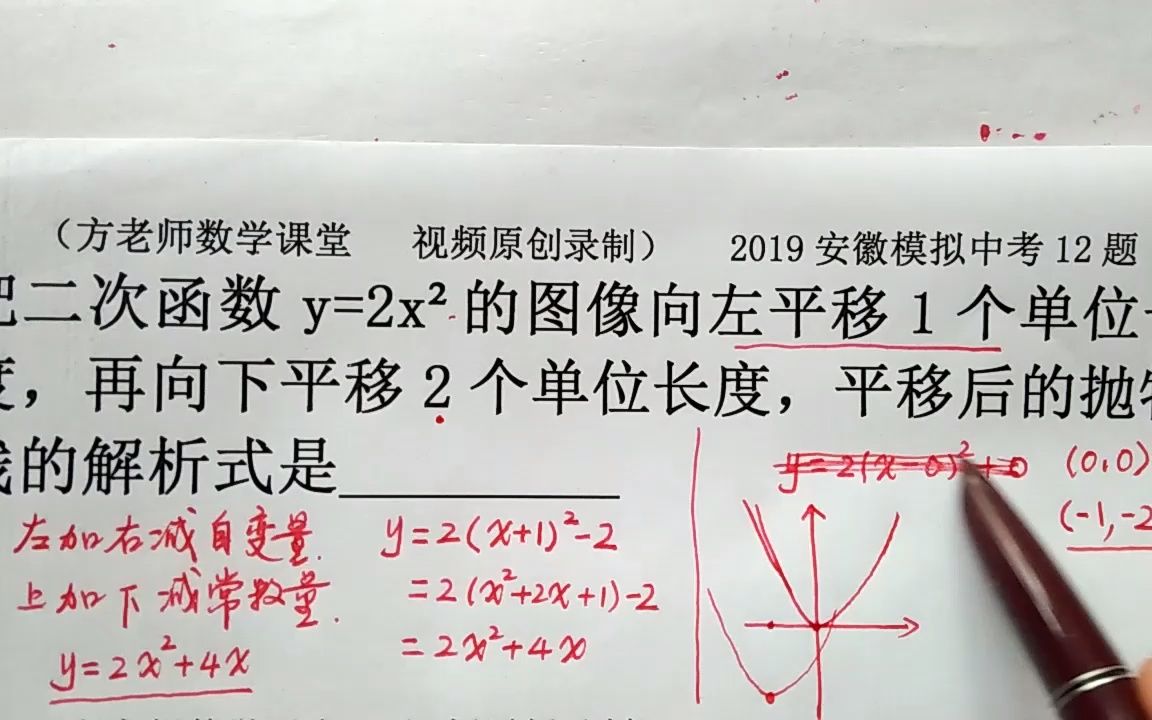 （方老师数学课堂 视频原创录制） 2019安徽模拟中考12题
二次函数 y=2x²的图像向左平移1个单位
，再向下平移2个单位长度，平移后的抛
的解析式是
y=2(x-0)²+0 (0,0)
(-1,-2
左加右减自变量.
上加下减常数量.
y=2x²+4x
y=2(x+1)²-2
=2(x²+2x+1)-2
=2x²+4x